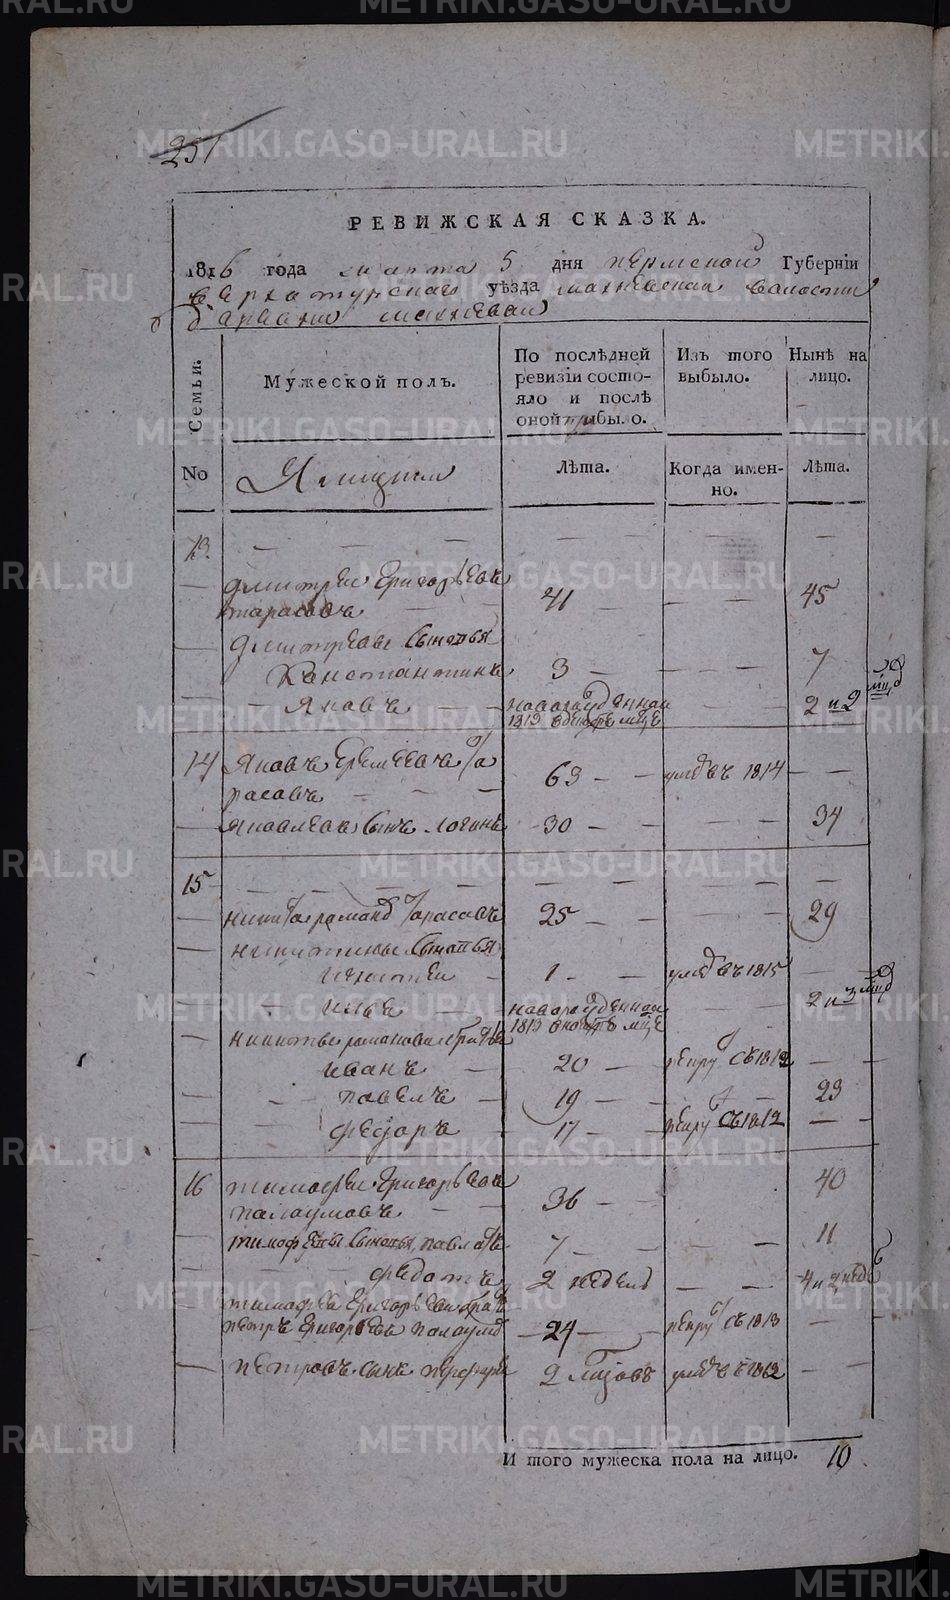 251
РЕВИЖСКАЯ СКАЗКА.
1816 года марта 5 дня пермской Губернїи
верхотурскаго уѣзда махневской волости
деревни
Семьи.
Мужеской полъ.
По послѣдней ревизїи состояло и послѣ оной прибыло.
Изъ того выбыло.
Нынѣ на лицо.
No
Ямщики
Лѣта.
Когда именно.
Лѣта.
13
дмитреи григорьевъ
тарасовъ 41 45
дмитреевы сыновья
Констентинъ 3 7
Яковъ новорожденной
1813 мцѣ 2 и 2 мцд
14 Яковъ еремеевъ та
расовъ 63 умре въ 1814
яковлевъ сынъ логинъ 30 34
15
никита романо тарасовъ 25 29
никитины сыновья
игнатеи 1 умре въ 1815
илье новорожденнои
1813 мцѣ 2 и 3 мцд
никиты романова братья
иванъ 20 рекру съ 1812
павелъ 19 23
федоръ 17 рекру съ 1812
16 тимофеи григорьевъ
палаумовъ 36 40
тимофеевы сыновья, павлатъ 7 11
федотъ 2 недель 4 и 2 недь
тимофея григорьева братъ
петръ григорьевъ палаумо 24 рекру съ 1813
петровъ сынъ перфире 2 годовъ умре въ 1812
И того мужеска пола на лицо. 10
METRIKI.GASO-URAL.RU